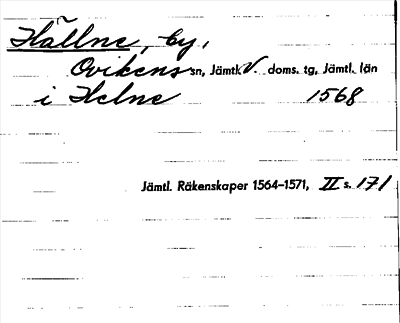 Hällne, by,
Ovikens sn, Jämtl. V. doms. tg, Jämtl. län
i Helne 1568
Jämtl. Räkenskaper 1564–1571, II s. 171